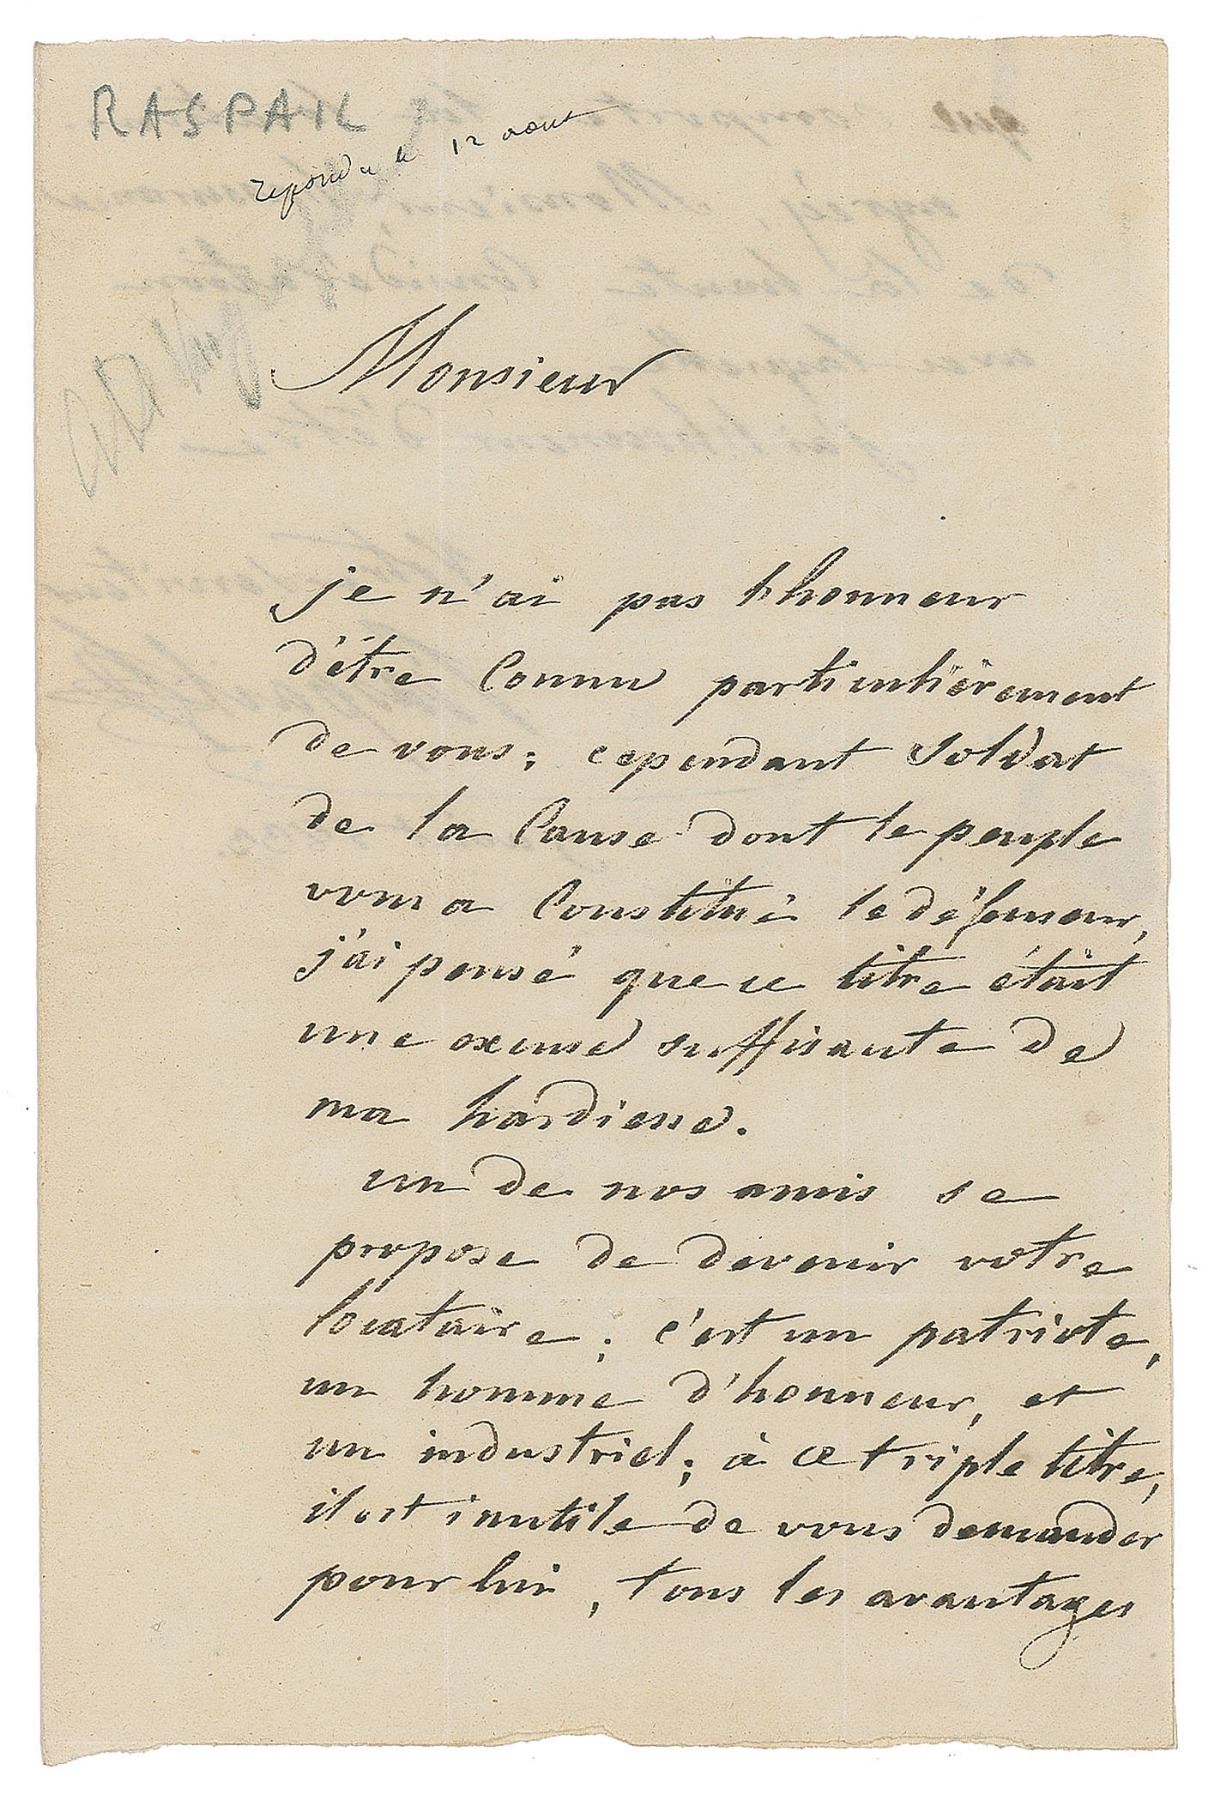 RASPAIL
répondu le 12 aout
Monsieur
je n'ai pas l'honneur
d'être Connu particulièrement
de vous; cependant Soldat
de la Cause dont le peuple
vous a Constitué le défenseur,
j'ai pensé que ce titre était
une excuse suffisante de
ma hardiesse.
un de nos amis se
propose de devenir votre
locataire; c'est un patriote,
un homme d'honneur, et
un industriel; à ce triple titre,
il est inutile de vous demander
pour lui, tous les avantages